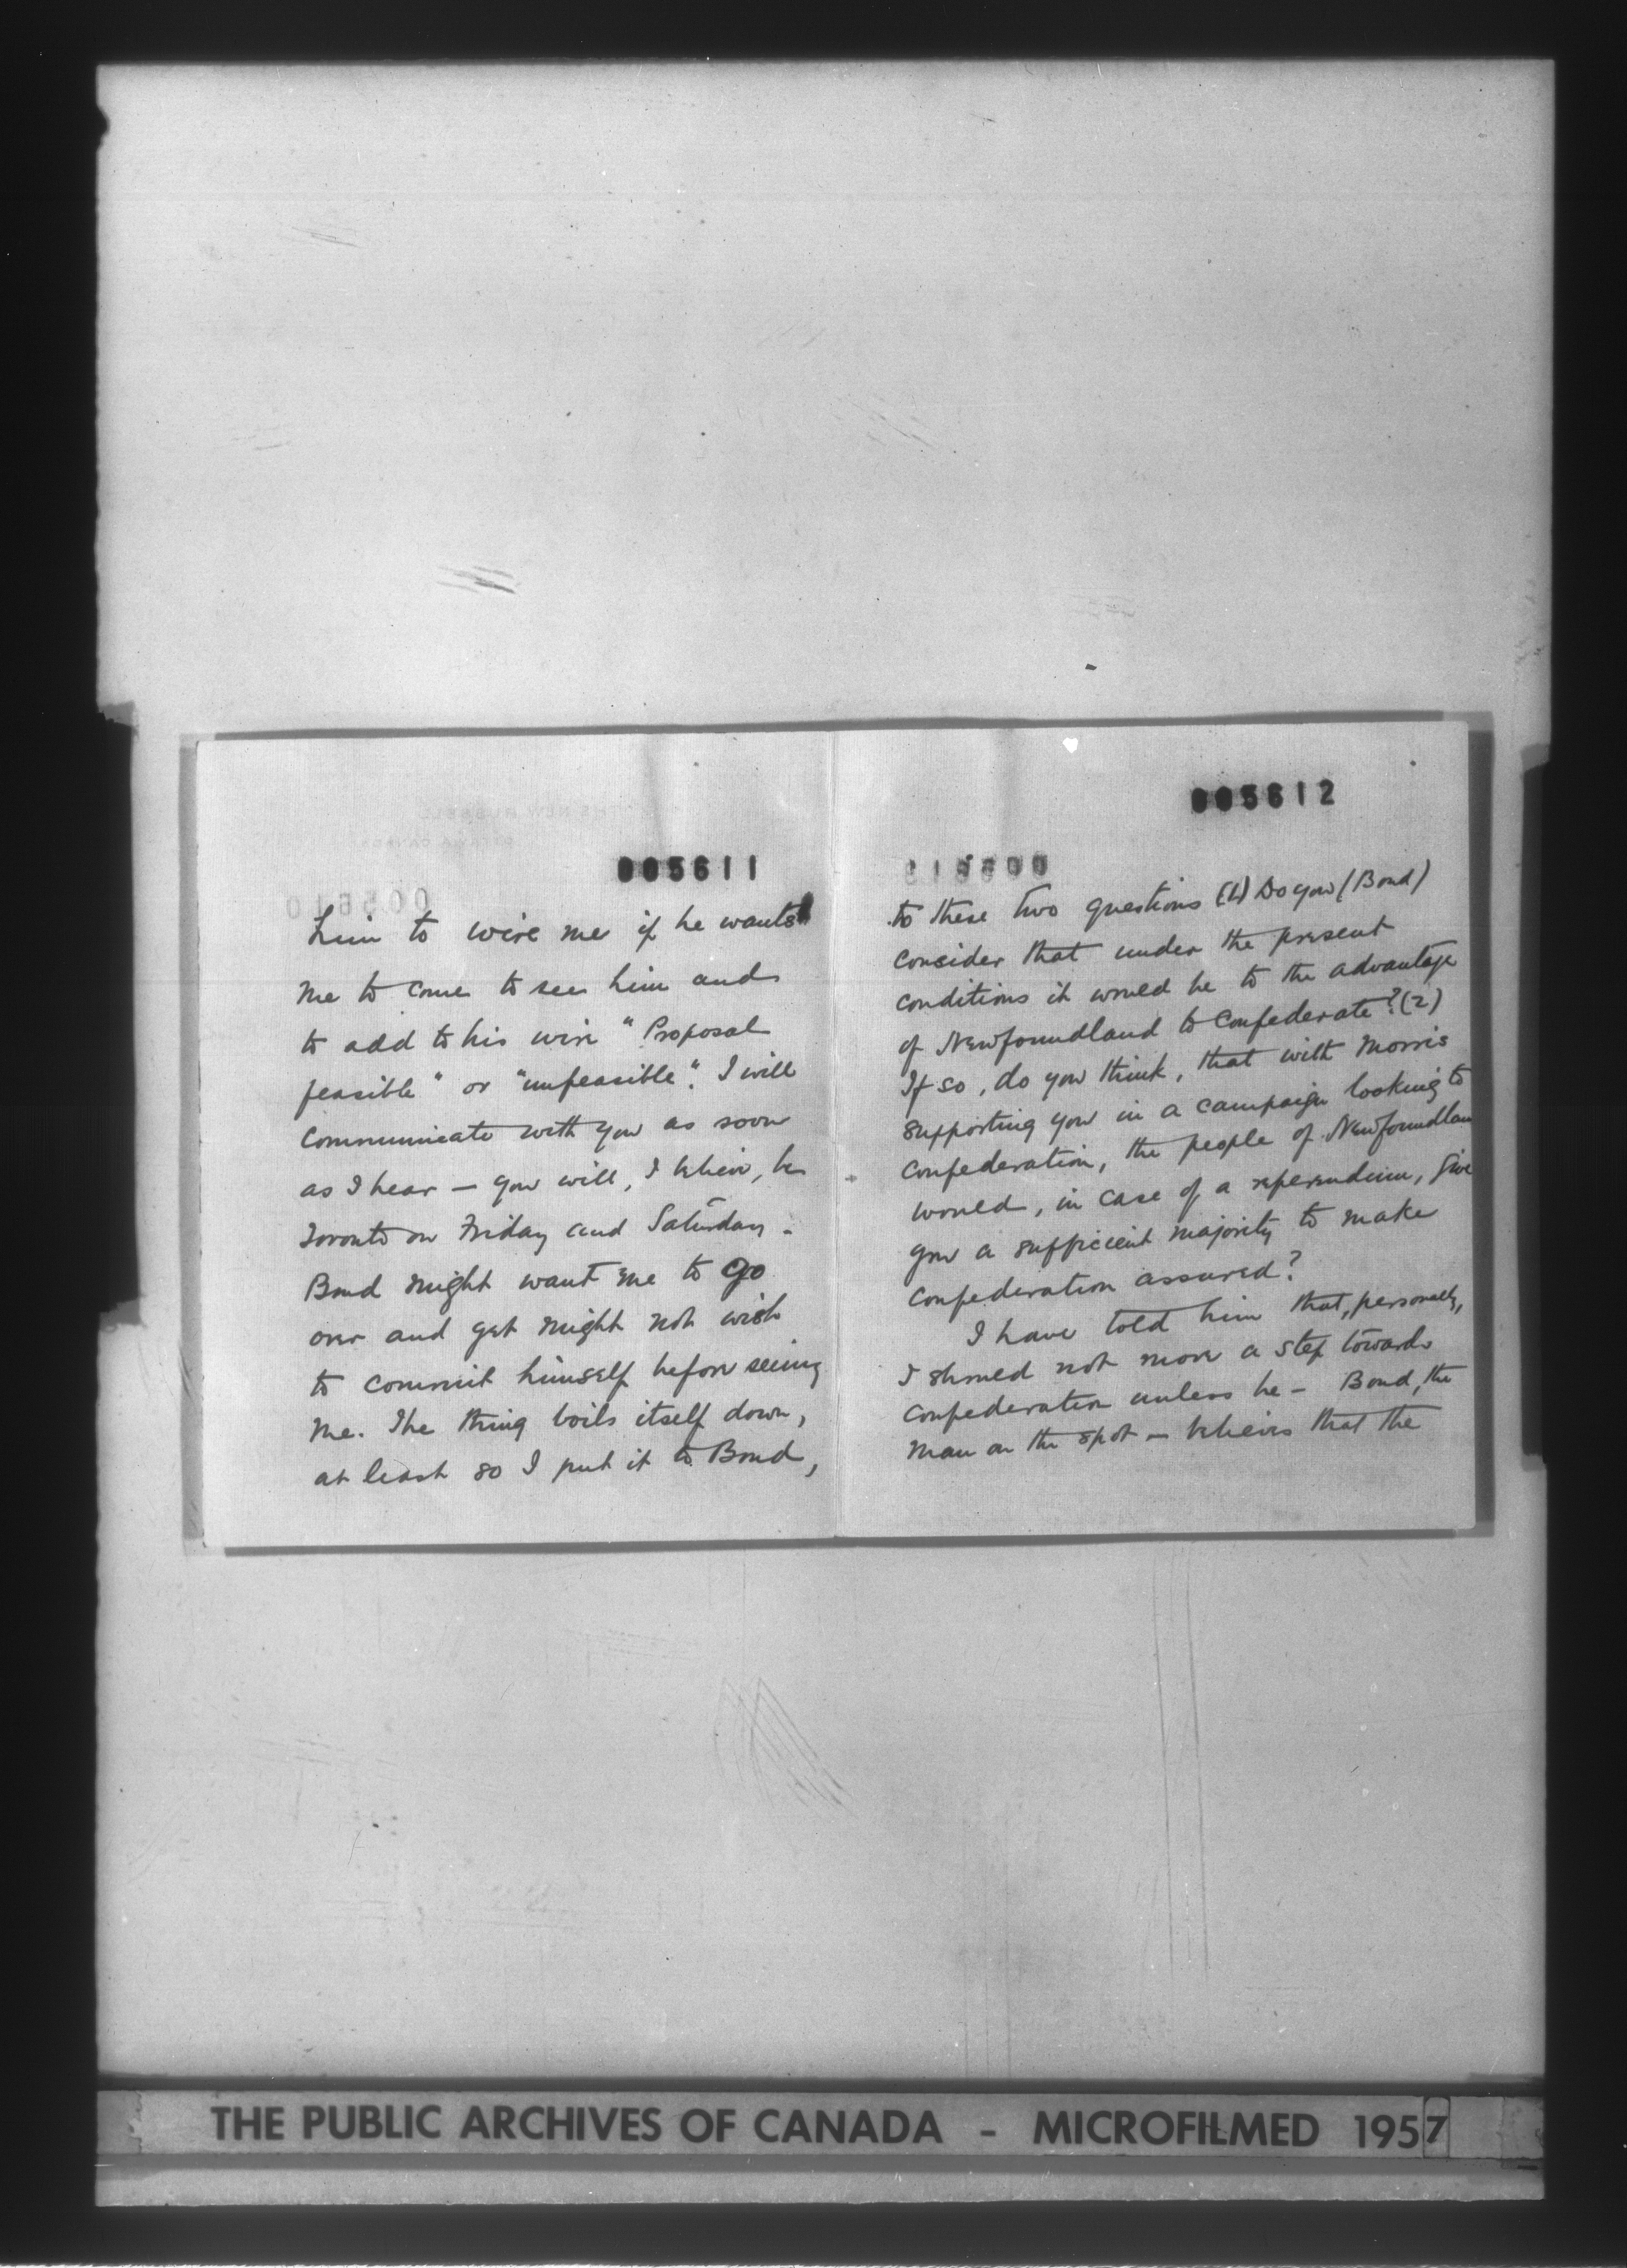 005611
him to wire me if he wants
me to come to see him and
to add to his wire "Proposal
feasible" or "unfeasible". I will
communicate with you as soon
as I hear — you will, I believe, be
Toronto on Friday and Saturday.
Bond might want me to go
over and yet might not wish
to commit himself before seeing
me. The thing boils itself down,
at least so I put it to Bond,
005612
to these two questions (1) Do you (Bond)
consider that under the present
conditions it would be to the advantage
of Newfoundland to Confederate? (2)
If so, do you think, that with Morris
supporting you in a campaign looking to
Confederation, the people of Newfoundlan
would, in case of a referendum, give
you a sufficient majority to make
Confederation assured?
I have told him that, personally,
I should not move a step towards
Confederation unless he — Bond, the
man on the spot — believes that the
THE PUBLIC ARCHIVES OF CANADA - MICROFILMED 1957